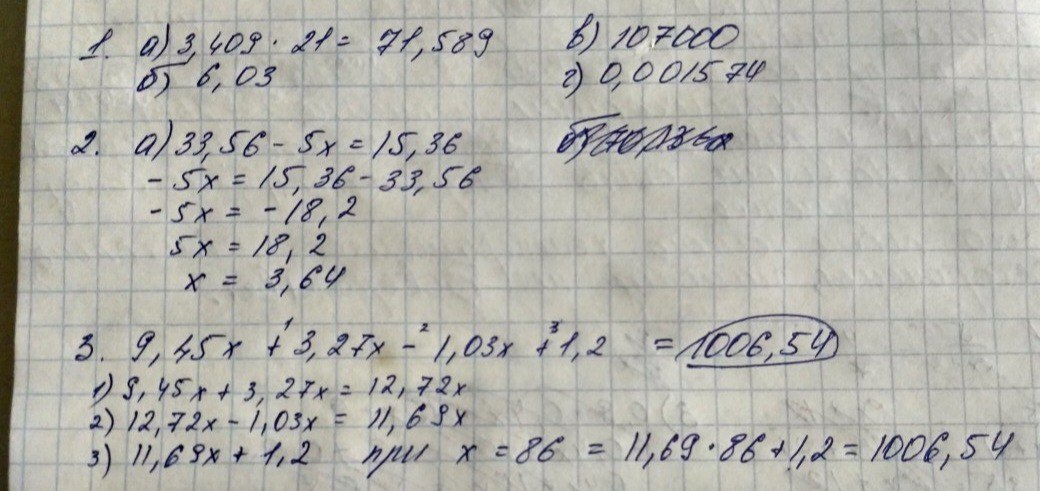 1. а) 3,409 · 21 = 71,589
б) 6,03
в) 107000
г) 0,001574
2. а) 33,56 - 5х = 15,36
- 5х = 15,36 - 33,56
- 5х = - 18,2
5х = 18,2
х = 3,64
3. 9,45х + 3,27х - 1,03х + 1,2 = 1006,54
1) 9,45х + 3,27х = 12,72х
2) 12,72х - 1,03х = 11,69х
3) 11,69х + 1,2 при х = 86 = 11,69 · 86 + 1,2 = 1006,54